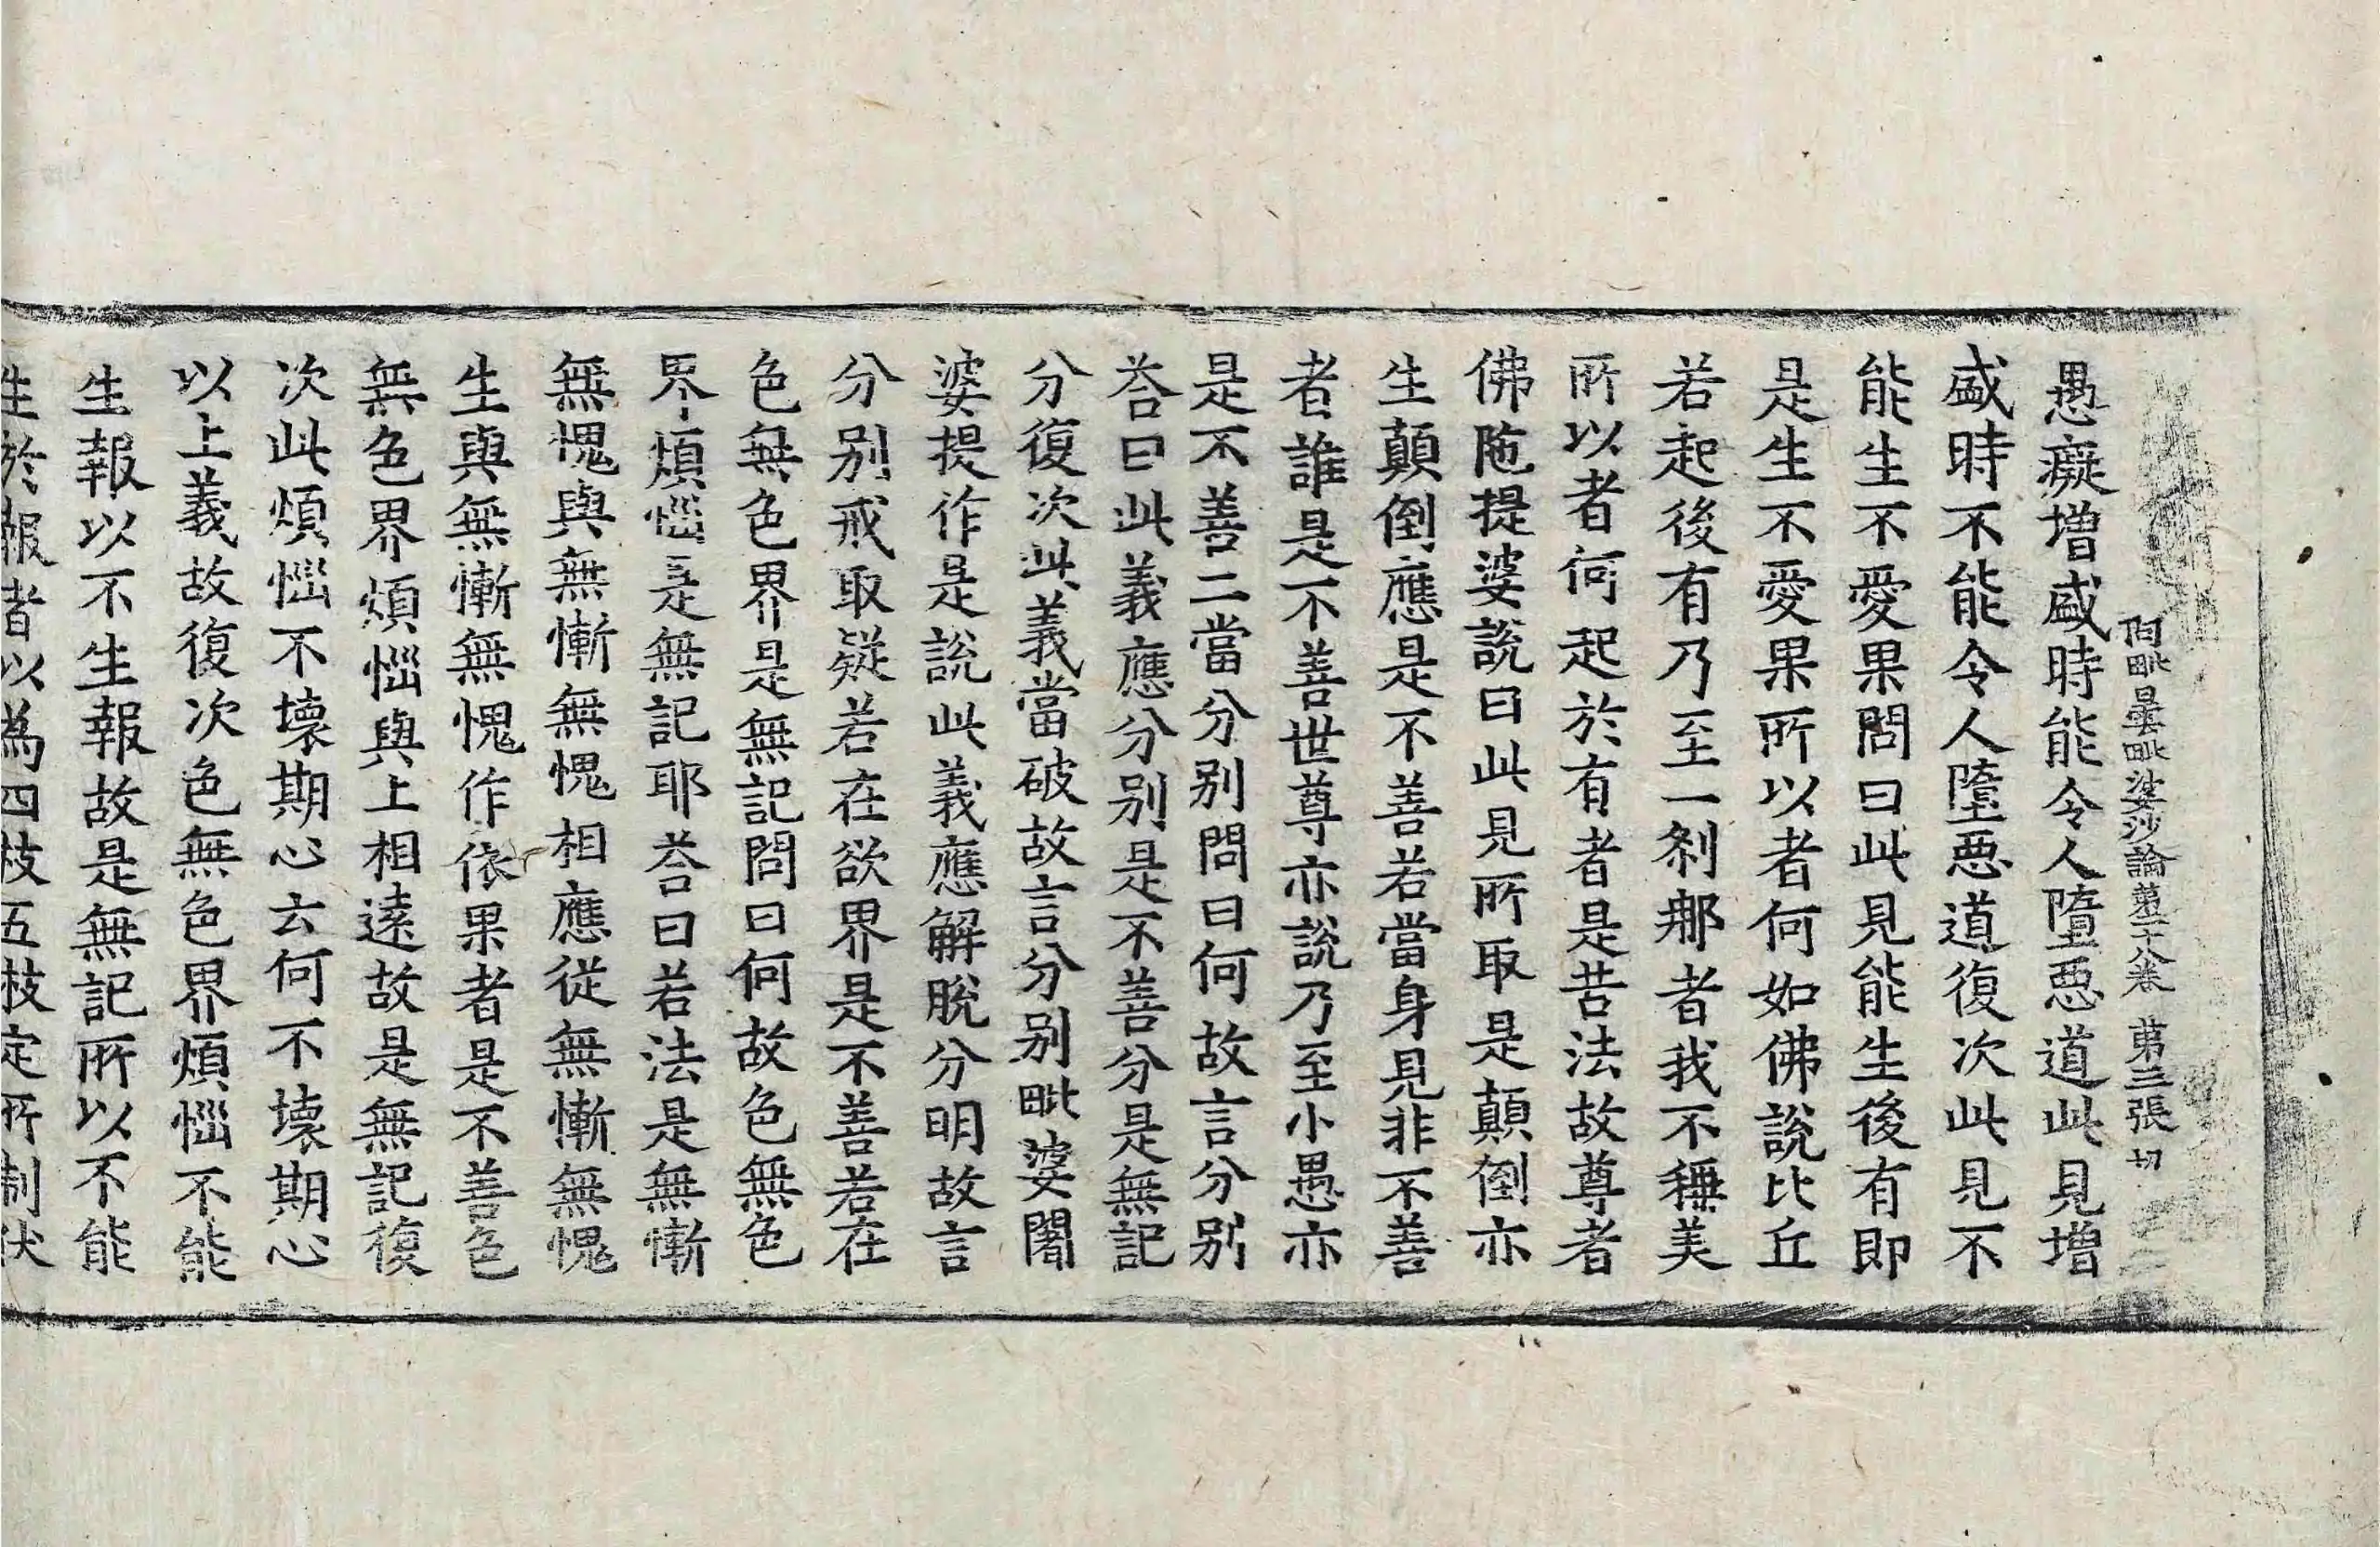 阿毗曇毗婆沙論第二十八卷　第三張　切
愚癡增盛時能令人墮惡道此見增
盛時不能令人墮惡道復次此見不
能生不愛果問曰此見能生後有即
是生不愛果所以者何如佛說比丘
若起後有乃至一刹那者我不稱美
所以者何起於有者是苦法故尊者
佛陁提婆說曰此見所取是顛倒亦
生顛倒應是不善若當身見非不善
者誰是不善世尊亦說乃至小愚亦
是不善二當分別問曰何故言分別
荅曰此義應分別是不善分是無記
分復次此義當破故言分別毗婆闍
婆提作是說此義應解脫分明故言
分別戒取疑若在欲界是不善若在
色無色界是無記問曰何故色無色
界煩惱是無記耶荅曰若法是無慚
無愧與無慚無愧相應從無慚無愧
生與無慚無愧作依果者是不善色
無色界煩惱與上相違故是無記復
次此煩惱不壞期心云何不壞期心
以上義故復次色無色界煩惱不能
生報以不生報故是無記所以不能
生於報者以為四枝五枝定所制伏